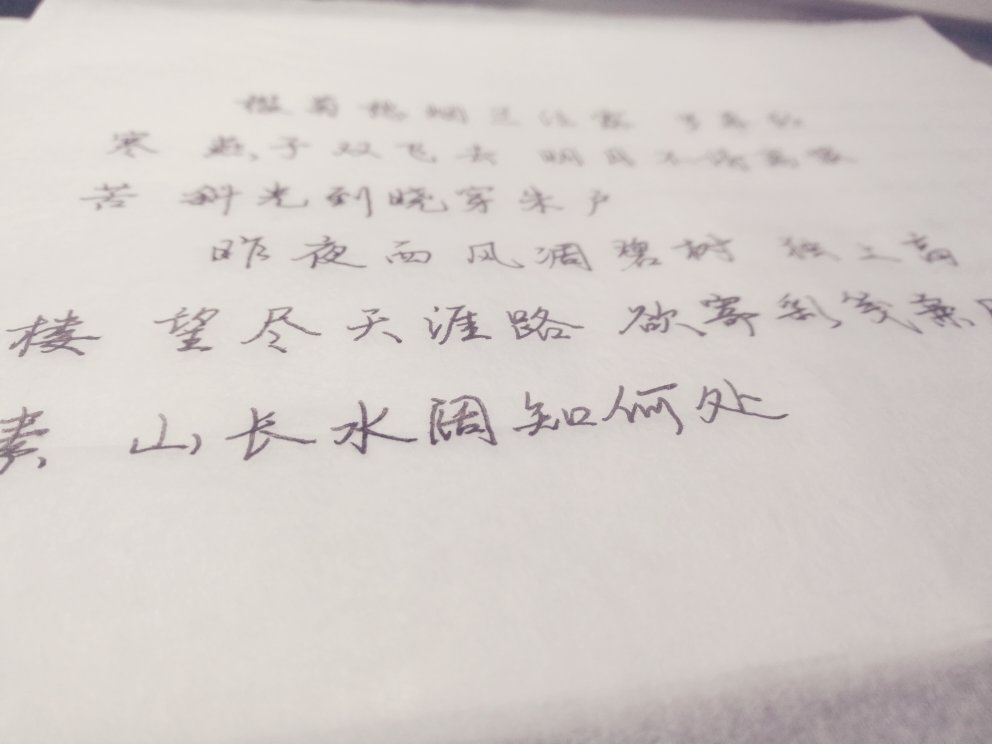 槛菊愁烟兰泣露
寒 燕子双飞去 明月不谙离恨
苦 斜光到晓穿朱户
昨夜西风凋碧树 独上高
楼 望尽天涯路 欲寄彩笺兼
素 山长水阔知何处